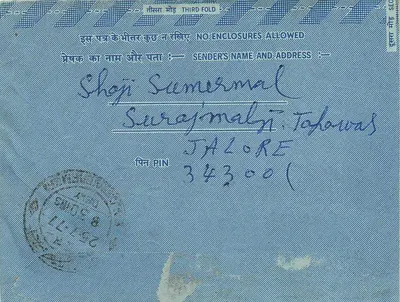 तीसरा मोड़ THIRD FOLD
इस पत्र के भीतर कुछ न रखिए NO ENCLOSURES ALLOWED
प्रेषक का नाम और पता :— SENDER'S NAME AND ADDRESS :—
Shoji Sumermal
Surajmalji. Tapawas
JALORE
पिन PIN 343001
25.7.77
8.30 MS